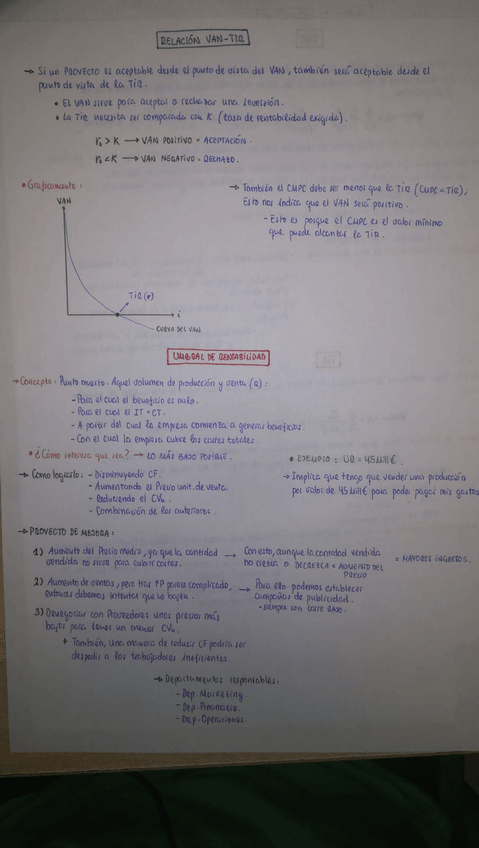 RELACIÓN VAN-TIR
→ Si un PROYECTO es aceptable desde el punto de vista del VAN, también será aceptable desde el
punto de vista de la TIR.
• El VAN sirve para aceptar o rechazar una inversión.
• La TIR necesita ser comparada con K (tasa de rentabilidad exigida).
r₀ > K → VAN POSITIVO = ACEPTACIÓN.
r₀ < K → VAN NEGATIVO = RECHAZO.
• Gráficamente:
VAN
TIR (r)
i
CURVA DEL VAN
→ También el CMPC debe ser menor que la TIR (CMPC < TIR);
Esto nos indica que el VAN será positivo.
- Esto es porque el CMPC es el valor mínimo
que puede alcanzar la TIR.
UMBRAL DE RENTABILIDAD
→ Concepto: Punto muerto. Aquel volumen de producción y venta (Q):
- Para el cual el beneficio es nulo.
- Para el cual el IT = CT.
- A partir del cual la empresa comienza a generar beneficios.
- Con el cual la empresa cubre los costes totales.
• ¿Cómo interesa que sea? → LO MÁS BAJO POSIBLE.
• EJEMPLO: UR = 45 Mill €.
→ Implica que tengo que vender una producción
por valor de 45 Mill € para poder pagar mis gastos
→ Como lograrlo: - Disminuyendo CF.
- Aumentando el Precio unit. de venta.
- Reduciendo el CVu.
- Combinación de los anteriores.
→ PROYECTO DE MEJORA:
1) Aumento del Precio medio, ya que la cantidad
vendida no sirve para cubrir costes.
→ Con esto, aunque la cantidad vendida
no crezca o DECREZCA < AUMENTO DEL
PRECIO
= MAYORES INGRESOS.
2) Aumento de ventas, pero tras ↑P parece complicado,
entonces debemos intentar que no bajen.
→ Para ello podemos establecer
campañas de publicidad.
- siempre con coste BAJO.
3) Renegociar con Proveedores unos precios más
bajos para tener un menor CVu.
+ También, una manera de reducir CF podría ser
despedir a los trabajadores ineficientes.
→ Departamentos responsables:
- Dep. Marketing.
- Dep. Financiero.
- Dep. Operaciones.